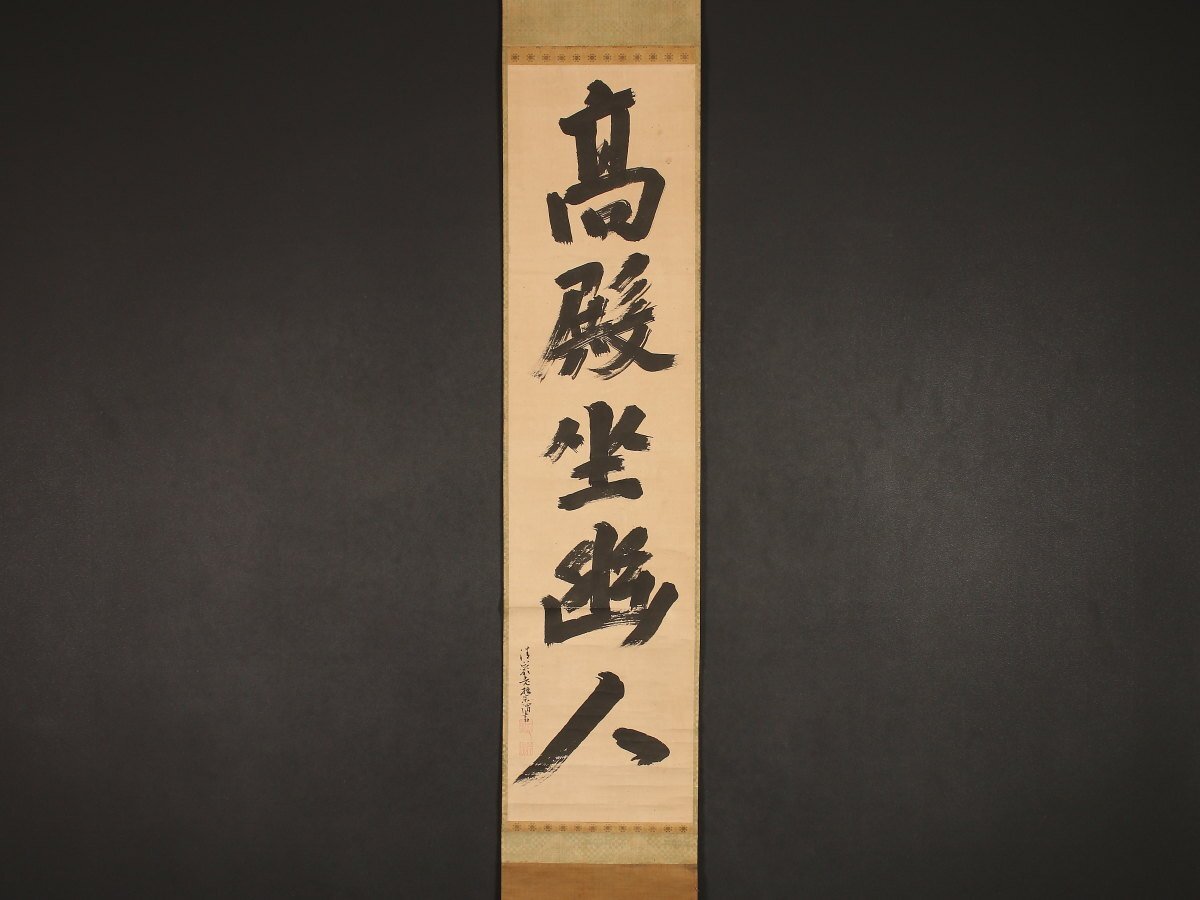 髙殿坐幽人